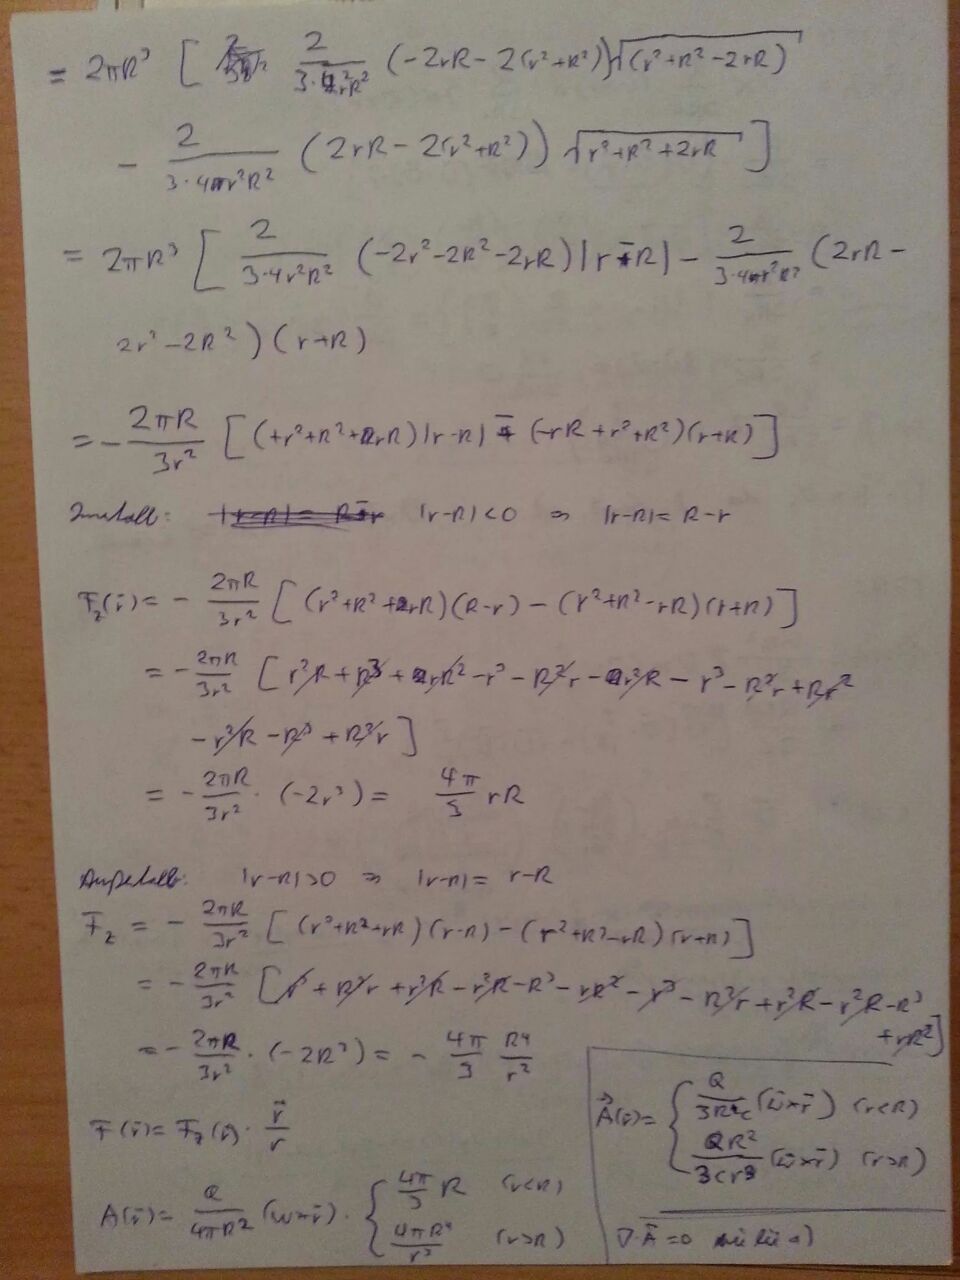 = 2πR³ [ 2/(3·4r²R²) (-2rR - 2(r²+R²)) √(r²+R²-2rR)
- 2/(3·4r²R²) (2rR - 2(r²+R²)) √(r²+R²+2rR) ]
= 2πR³ [ 2/(3·4r²R²) (-2r²-2R²-2rR) |r-R| - 2/(3·4r²R²) (2rR -
2r²-2R²) (r+R)
= - 2πR/(3r²) [ (+r²+R²+rR) |r-R| - (-rR+r²+R²)(r+R) ]
Innerhalb: |r-R| < 0 ⇒ |r-R| = R-r
F_z(r̄) = - 2πR/(3r²) [ (r²+R²+rR)(R-r) - (r²+R²-rR)(r+R) ]
= - 2πR/(3r²) [ r²R + R³ + rR² - r³ - R²r - r²R - r³ - R²r + Rr²
- r²R - R³ + R²r ]
= - 2πR/(3r²) · (-2r³) = 4π/3 rR
Außerhalb: |r-R| > 0 ⇒ |r-R| = r-R
F_z = - 2πR/(3r²) [ (r²+R²+rR)(r-R) - (r²+R²-rR)(r+R) ]
= - 2πR/(3r²) [ r³ + R²r + r²R - r²R - R³ - rR² - r³ - R²r + r²R - r²R - R³
+ rR² ]
= - 2πR/(3r²) · (-2R³) = - 4π/3 R⁴/r²
F(r̄) = F_z(r̄) · r̄/r
A(r̄) = Q/(4πR²) (ω×r̄) · { 4π/3 R (r<R)
4πR⁴/r³ (r>R)
A⃗(r̄) = { Q/(3Rc) (ω̄×r̄) (r<R)
QR²/(3cr³) (ω̄×r̄) (r>R)
∇·Ā = 0 wie bei a)